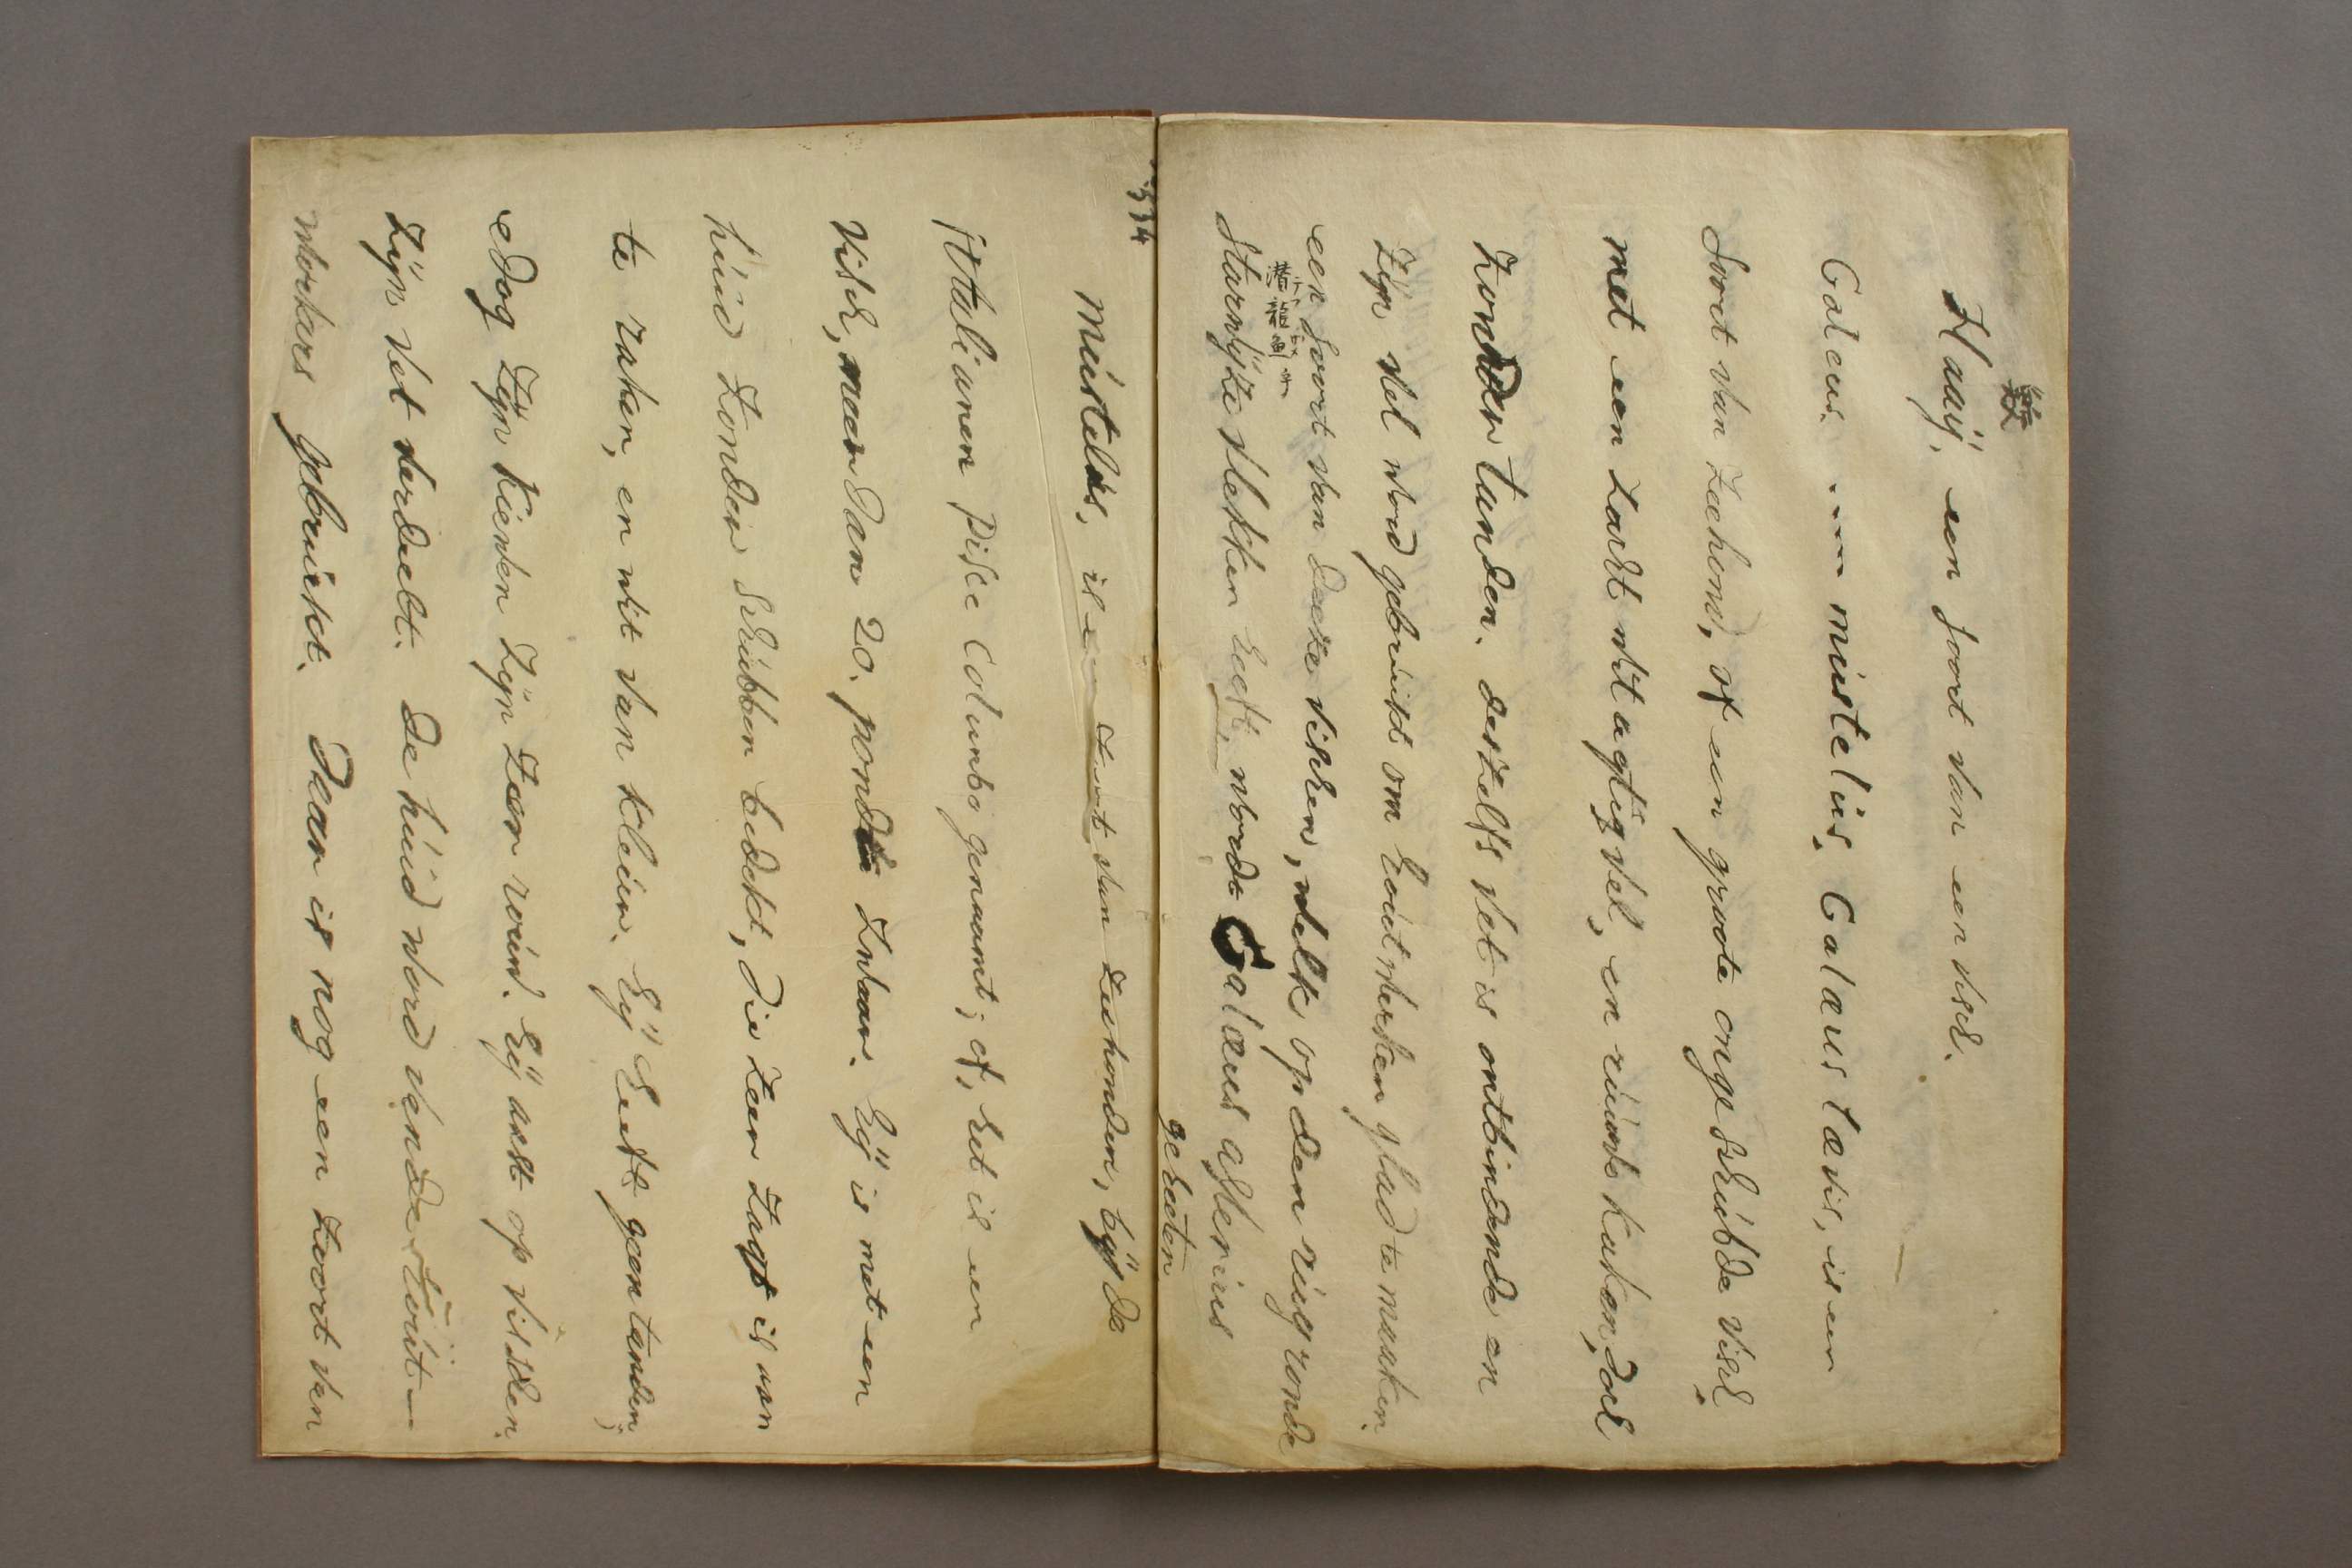 Haaÿ, een soort van een visch.
Galeus. mústelús. Galæus lævis, is een
soort van zeehond, of een groote ongeschúbde visch
met een zacht wit agtig vel, en rúwde kaken, doch
zonder tanden. deszelfs vet is ontbindende en
zÿn vel word gebrúikt om houtwerken glad te maaken.
een soort van deeze visschen, welk op den rúg ronde
潜龍魚
starwÿze vlekken heeft, worde Galæus asterius
geheeten
534
mústelús, is een zoort van zeehonden, bÿ de
Italianen pisce Columbo genaamt; of, het is een
visch, meer dan 20. ponden zwaar. hÿ is met een
húid zonder schúbben bedekt, die zeer zagt is aan
te raken, en wit van kleúr. hÿ heeft geen tanden,
edog zÿn kieuwen zÿn zeer roúw. hÿ aest op visschen.
zÿn vet verdeelt. de húid word van de hoút-
workers gebrúikt. Daar is nog een zoort van